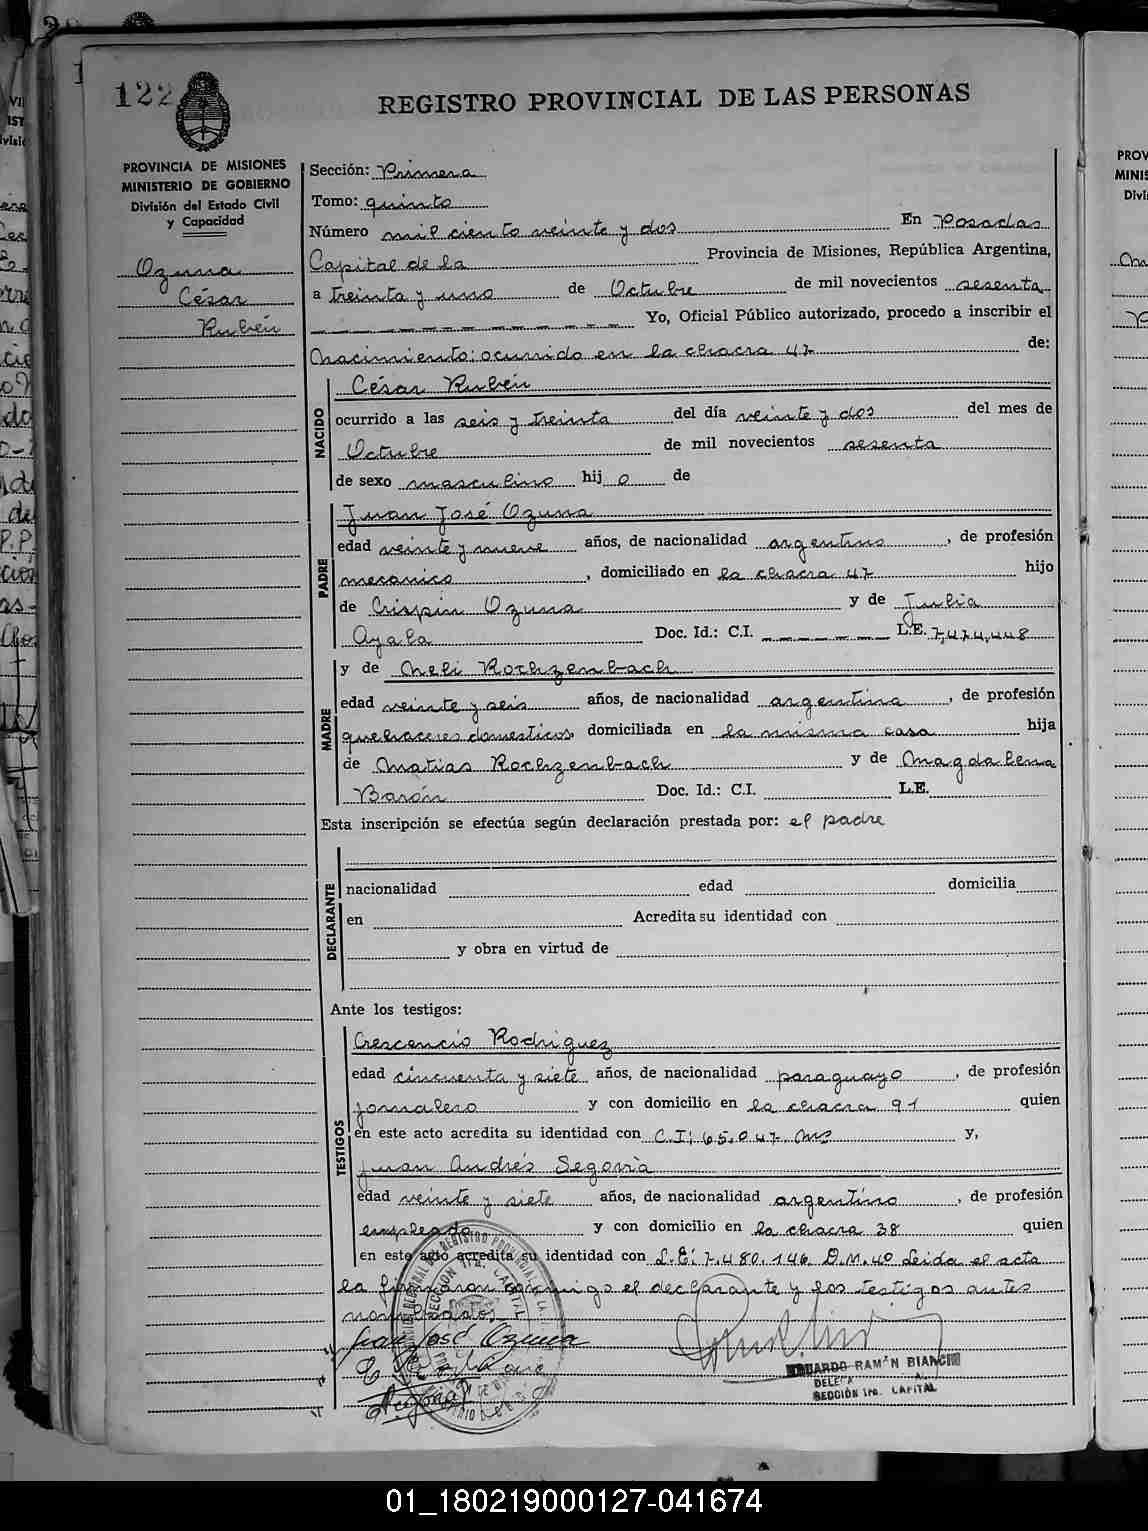 122
REGISTRO PROVINCIAL DE LAS PERSONAS
PROVINCIA DE MISIONES
MINISTERIO DE GOBIERNO
División del Estado Civil
y Capacidad
Ozuna
César
Rubén
Sección: Primera
Tomo: quinto
Número mil ciento veinte y dos En Posadas
Capital de la Provincia de Misiones, República Argentina,
a treinta y uno de Octubre de mil novecientos sesenta
Yo, Oficial Público autorizado, procedo a inscribir el
Nacimiento: ocurrido en la chacra 47 de:
NACIDO
César Rubén
ocurrido a las seis y treinta del día veinte y dos del mes de
Octubre de mil novecientos sesenta
de sexo masculino hijo de
PADRE
Juan José Ozuna
edad veinte y nueve años, de nacionalidad argentino, de profesión
mecánico, domiciliado en la chacra 47 hijo
de Crispín Ozuna y de Julia
Ayala Doc. Id.: C.I. L.E. 7,474,448
MADRE
y de Neli Rochzenbach
edad veinte y seis años, de nacionalidad argentina, de profesión
quehaceres domesticos, domiciliada en la misma casa hija
de Matias Rochzenbach y de Magdalena
Barón Doc. Id.: C.I. L.E.
Esta inscripción se efectúa según declaración prestada por: el padre
DECLARANTE
nacionalidad edad domicilia
en Acredita su identidad con
y obra en virtud de
Ante los testigos:
TESTIGOS
Crescencio Rodriguez
edad cincuenta y siete años, de nacionalidad paraguayo, de profesión
jornalero y con domicilio en la chacra 91 quien
en este acto acredita su identidad con C.I: 65.047. y,
Juan Andrés Segovia
edad veinte y siete años, de nacionalidad argentino, de profesión
empleado y con domicilio en la chacra 38 quien
en este acto acredita su identidad con L.E: 7.480.146 D.M.40 Leida el acta
la firmaron conmigo el declarante y los testigos antes
nombrados
Juan José Ozuna
EDUARDO RAMON BIANCHI
SECCIÓN 1ra. CAPITAL
01_180219000127-041674